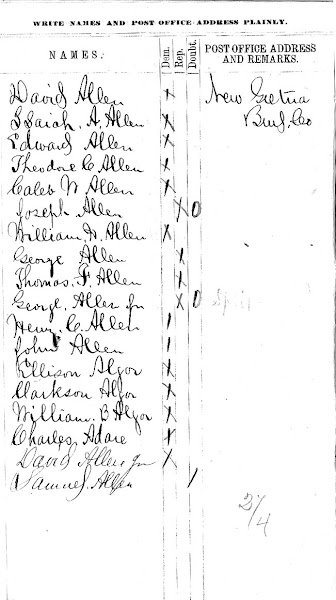 WRITE NAMES AND POST OFFICE ADDRESS PLAINLY.
NAMES. Dem. Rep. Doubt. POST OFFICE ADDRESS
AND REMARKS.
David Allen x New Gretna
Isaiah. A. Allen x Burl. Co
Edward Allen x
Theodore C Allen x
Caleb W Allen x
Joseph Allen x 0
William. H. Allen x
George Allen x
Thomas. F. Allen x
George. Allen Jr x 0
Henry. C. Allen 1
John Allen 1
Ellison Algor x
Clarkson Algor x
William. B Algor x
Charles. Adare x
David Allen Jr x
Samuel. Allen 1